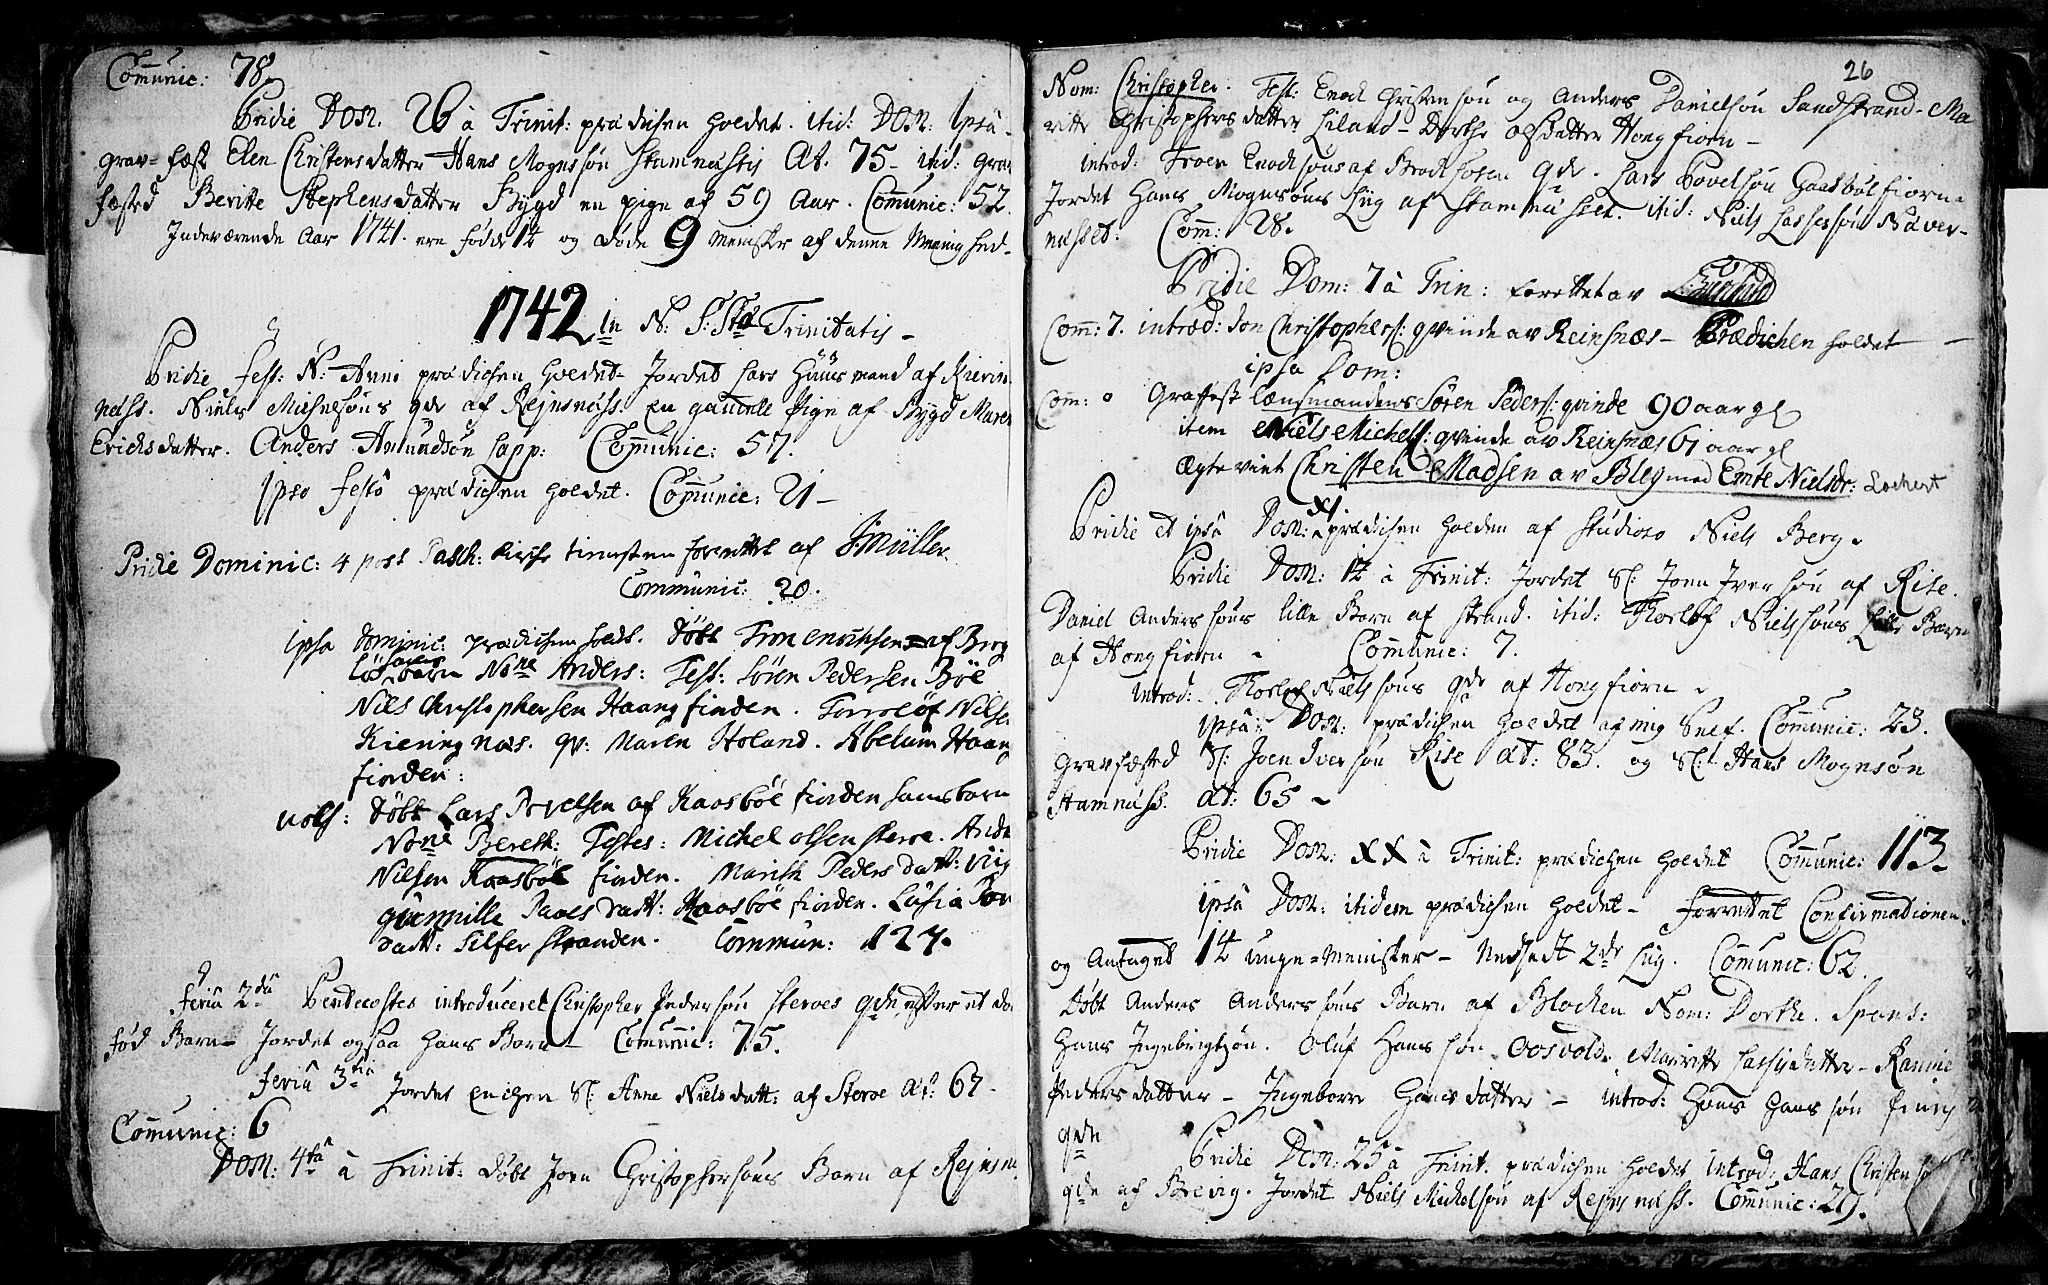 Com̄unic: 78.
Pridie Dom. 26 à Trinit: prædichen holdet. itid: Dom: ipsâ
grav-fæst Elen Christensdatter Hans Mognssøn Stamnæssis Æt. 75 - itid: grav
fæsted Beritte Stephensdatter Bygd en pige af 59 Aar. Com̄unic: 52.
Indeværende Aar 1741. ere fødde 12 og døde 9 Mennisker af denne Menighed.
1742 in N: S: Stæ Trinitatis -
Pridie Fest: N: Anni prædichen holdet - Jordet Lars Huusmand af Kiering
næss. Niels Michelsøns qde af Rejnsnæss. En gammel Pige af Bygd Maren
Ericksdatter. Anders Amundsøn Lapp: Com̄unic: 57.
Ipso festo prædichen holdet. Com̄unic: 21 -
Pridie Dominic: 4 post Pasch: Kirche tienesten forrettet af SMüller
Communic: 20.
ipsa Dominic: prædichen holdt. døbt Tron Enochsen af Brog
løsbarn No͞ne Anders: Test: Sören Pedersen Böe
Nils Christophersen Haangfiorden. Torrolöf Nilsen
Kieringnæs. qv: Maren Holand. Abelum Haang
fiorden:
døbt Lars Povelsen af Kaasböe fiorden hans barn
No͞ne Bereth: Testes: Michel Olsen Steroe. Ande
Nilsen Kaasböe fiorden. Marith Peders datt: Vig
gunnille Paals datt: Kaasböe fiorden. Lusia Pov
datt: Silfer stranden. Commun: 127.
Feriâ 2dâ Pentecostes introduceret Christopher Pedersøn Steroes qde efter et død
fød Barn - Jordet ogsaa hans Barn - Com̄unic: 75.
Feriâ 3tiâ Jordet enchen Sl: Anne Nielsdatt: af Steroe Æt: 67 -
Com̄unic: 6
Dom: 4tâ à Trinit: døbt Joen Christophersøns Barn af Rejnsnæ
26
Nom: Christopher. Test: Enoch Christensøn og Anders Danielsøn Sandstrand - Ma
ritte Christophersdatter Liland - Dorthe Olsdatter Hongfiorn -
introd: Troen Enochsøns af Brochsosen qde. Lars Povelsøn Gaasbølfiorn -
Jordet Hans Mognsøns Lüg af Stamnæsset. itid: Niels Lassesøn Bøver-
næsset: Com̄: 28.
Pridie Dom: 7 à Trin: forettet av
Com̄: 7. introd: Jon Christophers: qvinde av Reinsnæs - Prædichen holdet -
ipsa Dom:
Com: 0 Graffest lænsmandens Sören Peders: qvinde 90 aar gl
item Niels Michels: qvinde av Reinsnæs 61 aar gl
Ægteviet Christen Madsen av Bleg med Emte Nielsdr: Lochert
Pridie et ipsâ Dom: XI. à prædichen holden af Studioso Niels Berg.
Pridie Dom: 12 à Trinit: Jordet Sl: Joen Iversøn af Rise.
Daniel Andersøns lille Barn af Strand. itid: Thorlof Nielssøns Lille Barn
af Hongfiorn - Com̄unic: 7.
Introd: Thorlof Nielssøns qde af Hongfiorn -
ipsâ: Dom: prædichen holdet af mig Self. Com̄unic: 23.
Gravfæsted Sl: Joen Iversøn Rise Æt: 83. og Sl: Hans Mognsøn
Stamnæss. Æt: 65 -
Pridie Dom: XX à Trinit: prædichen holdet Com̄unic: 113.
ipsâ Dom: itidem prædichen holdet - forrettet Confirmationen.
og Antaget 14 unge-Mennisker - Nedsett 2de Lüg. Com̄unic: 62.
døbt Anders Andersøns Barn af Blochen Nom: Dorthe. Spons:
Hans Ingebrigtsøn. Oluf Hanssøn Oosvold. Maritte Lassisdatter - Rannie
Pedersdatter - Ingeborre Hansdatter - introd: Hans Hanssøn
qde
Pridie Dom: 25 à Trinit. prædichen holdet introd: Hans Christensø
qde af Brevig. Jordet Niels Michelsøn af Rejnsnæss. Com̄unic: 29.